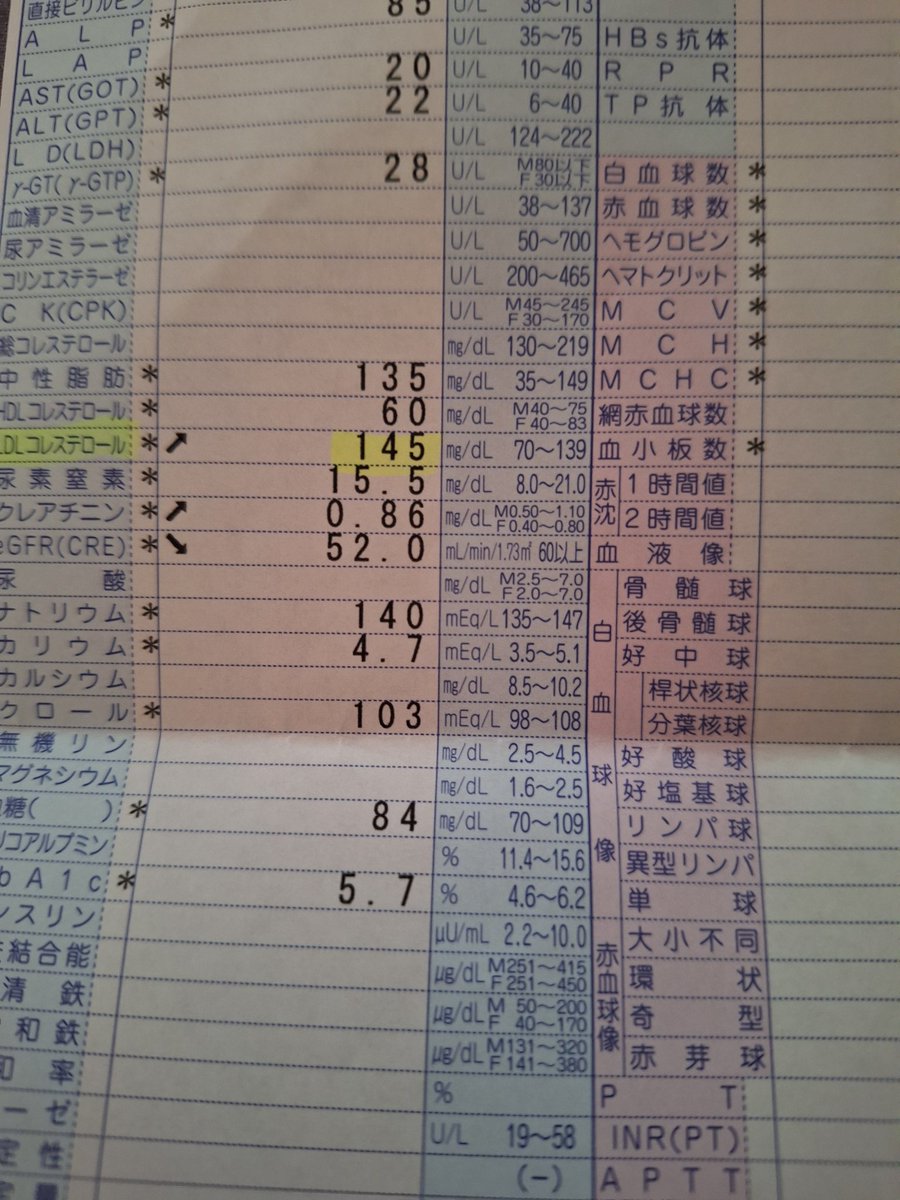 直接ビリルビン 85 U/L 38〜113
ALP * U/L 35〜75 HBs抗体
LAP 20 U/L 10〜40 RPR
AST(GOT) * 22 U/L 6〜40 TP抗体
ALT(GPT) * U/L 124〜222
L D(LDH) 28 U/L M80以下 F30以下 白血球数 *
γ-GT(γ-GTP) * U/L 38〜137 赤血球数 *
血清アミラーゼ U/L 50〜700 ヘモグロビン *
尿アミラーゼ U/L 200〜465 ヘマトクリット *
コリンエステラーゼ U/L M45〜245 F30〜170 MCV *
C K(CPK) mg/dL 130〜219 MCH *
総コレステロール
中性脂肪 * 135 mg/dL 35〜149 MCHC *
HDLコレステロール * 60 mg/dL M40〜75 F40〜83 網赤血球数
LDLコレステロール * ➚ 145 mg/dL 70〜139 血小板数 *
尿素窒素 * 15.5 mg/dL 8.0〜21.0 赤沈 1時間値
クレアチニン * ➚ 0.86 mg/dL M0.50〜1.10 F0.40〜0.80 2時間値
eGFR(CRE) * ➘ 52.0 mL/min/1.73㎡ 60以上 血液像
尿酸 mg/dL M2.5〜7.0 F2.0〜7.0 白血球像 骨髄球
ナトリウム * 140 mEq/L 135〜147 後骨髄球
カリウム * 4.7 mEq/L 3.5〜5.1 好中球
カルシウム mg/dL 8.5〜10.2 桿状核球
クロール * 103 mEq/L 98〜108 分葉核球
無機リン mg/dL 2.5〜4.5 好酸球
マグネシウム mg/dL 1.6〜2.5 好塩基球
糖( ) * 84 mg/dL 70〜109 リンパ球
リコアルブミン % 11.4〜15.6 異型リンパ
bA1c * 5.7 % 4.6〜6.2 単球
ンスリン μU/mL 2.2〜10.0 赤血球像 大小不同
結合能 μg/dL M251〜415 F251〜450 環状
清鉄 μg/dL M50〜200 F40〜170 奇型
和鉄 μg/dL M131〜320 F141〜380 赤芽球
和率 % PT
ーゼ U/L 19〜58 INR(PT)
定性 (−) APTT